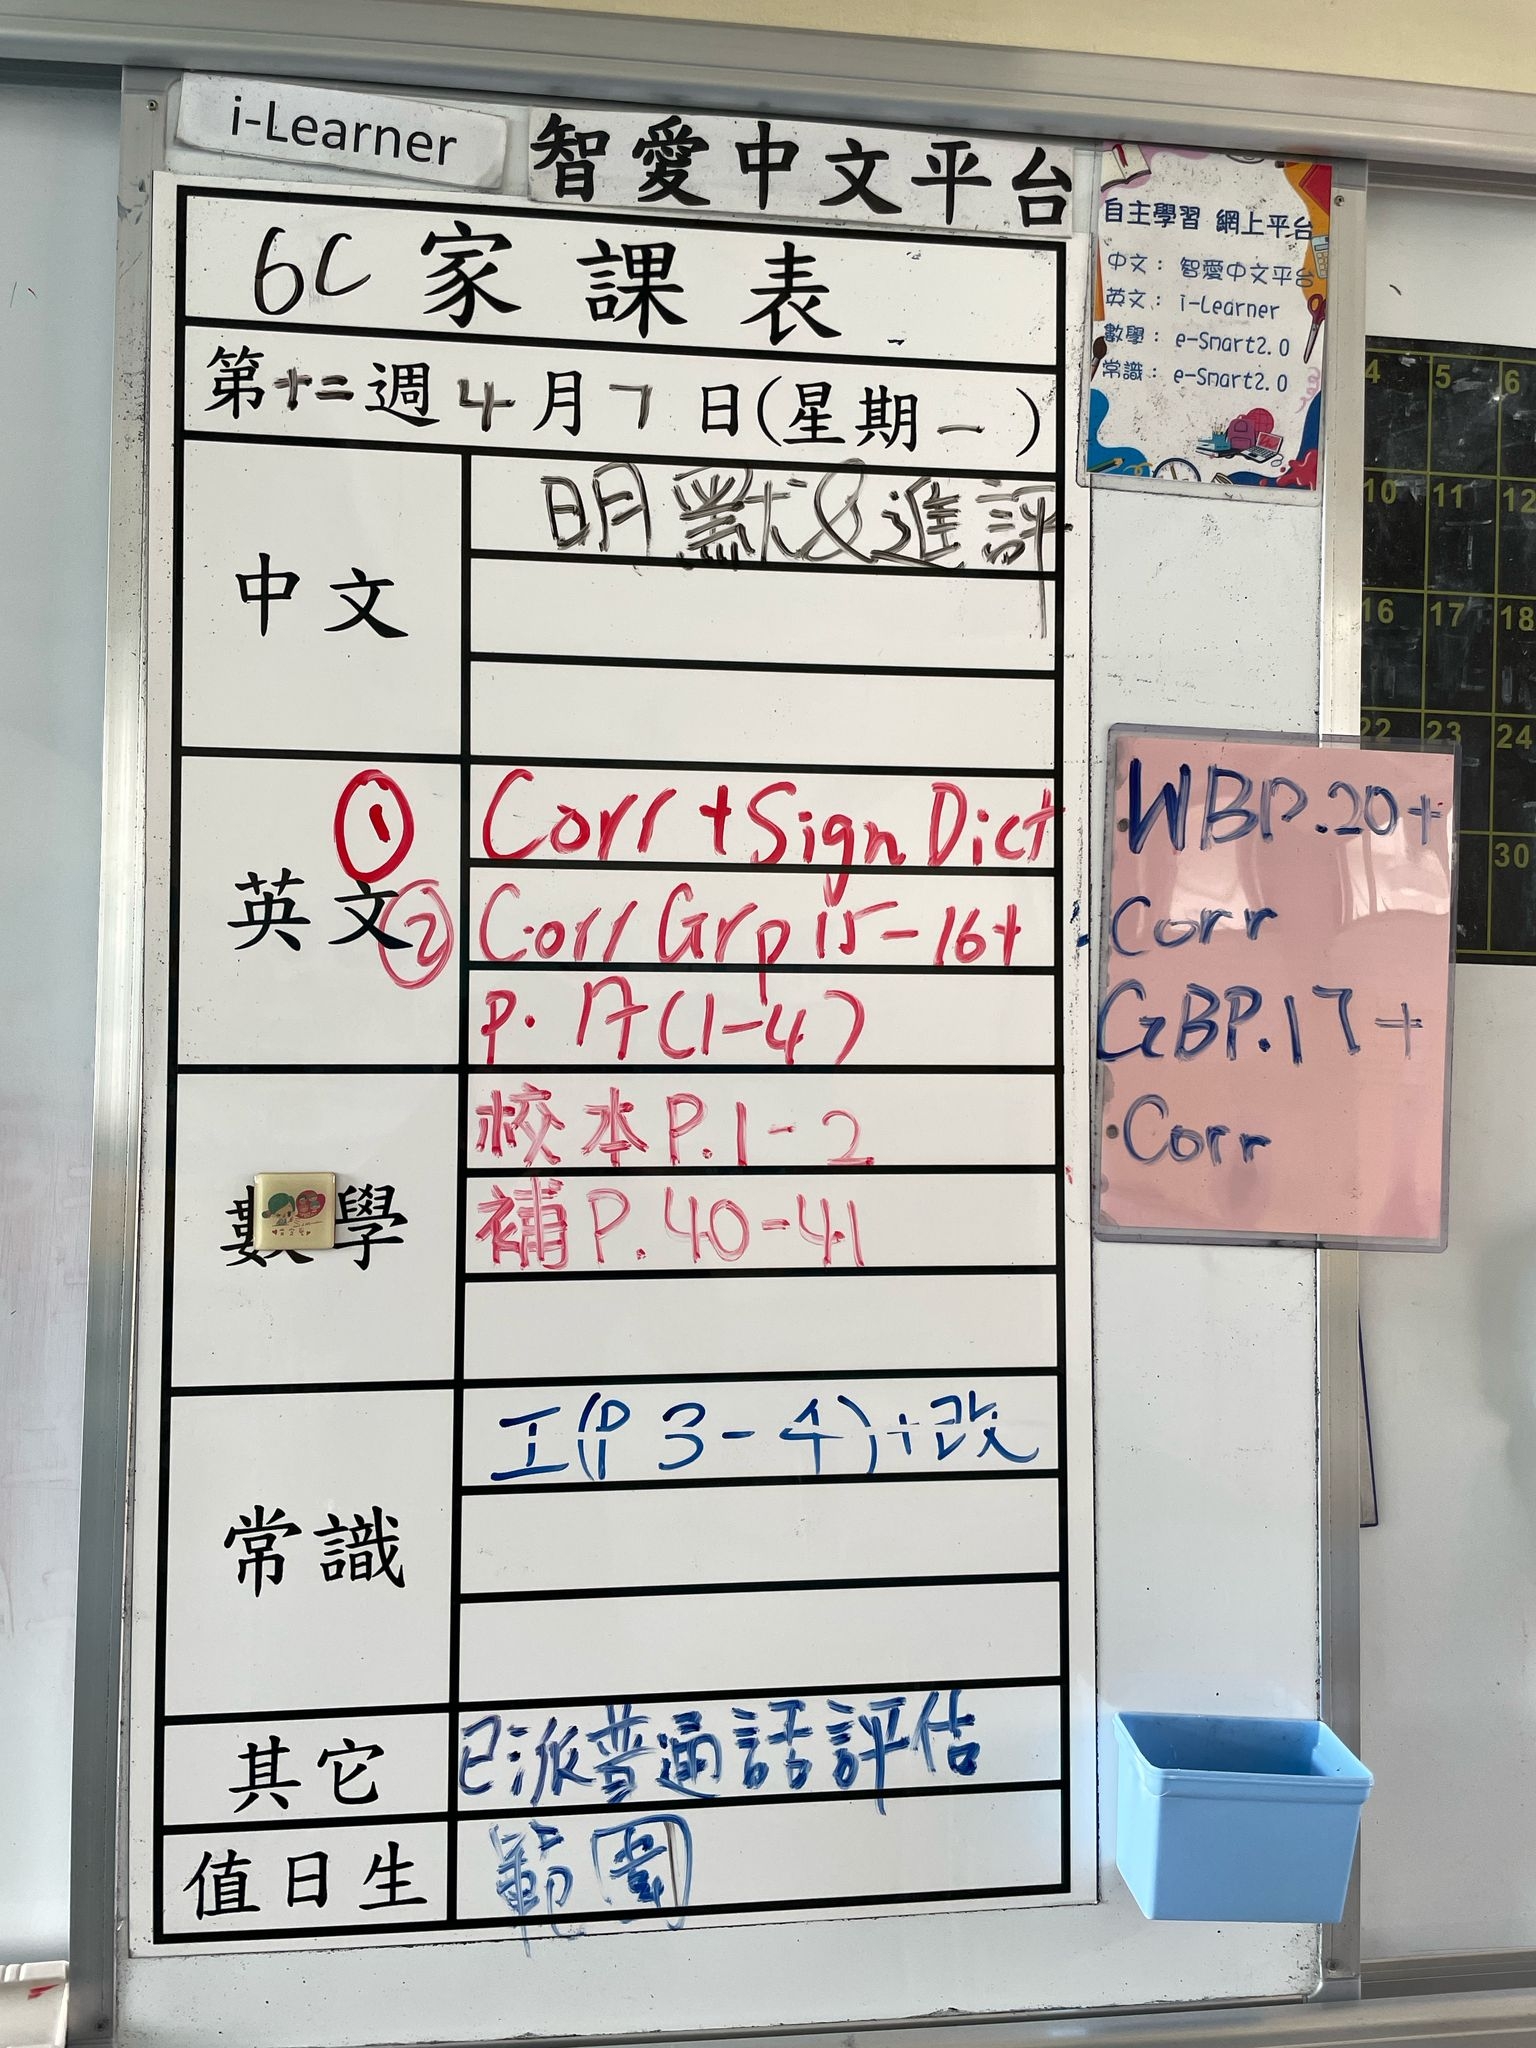 i-Learner
智愛中文平台
6C 家課表
第十二週4月7日(星期一)
中文
明默&進評
英文
① Corr + Sign Dict
② Corr Grp 15-16+
p. 17(1-4)
數學
校本P.1-2
補P.40-41
常識
工(P 3-4)+改
其它
已派普通話評估
值日生
範圍
自主學習 網上平台
中文： 智愛中文平台
英文： i-Learner
數學： e-Smart2.0
常識： e-Smart2.0
WBP.20+
Corr
GBP.17+
Corr
4 5 6
10 11 12
16 17 18
22 23 24
30